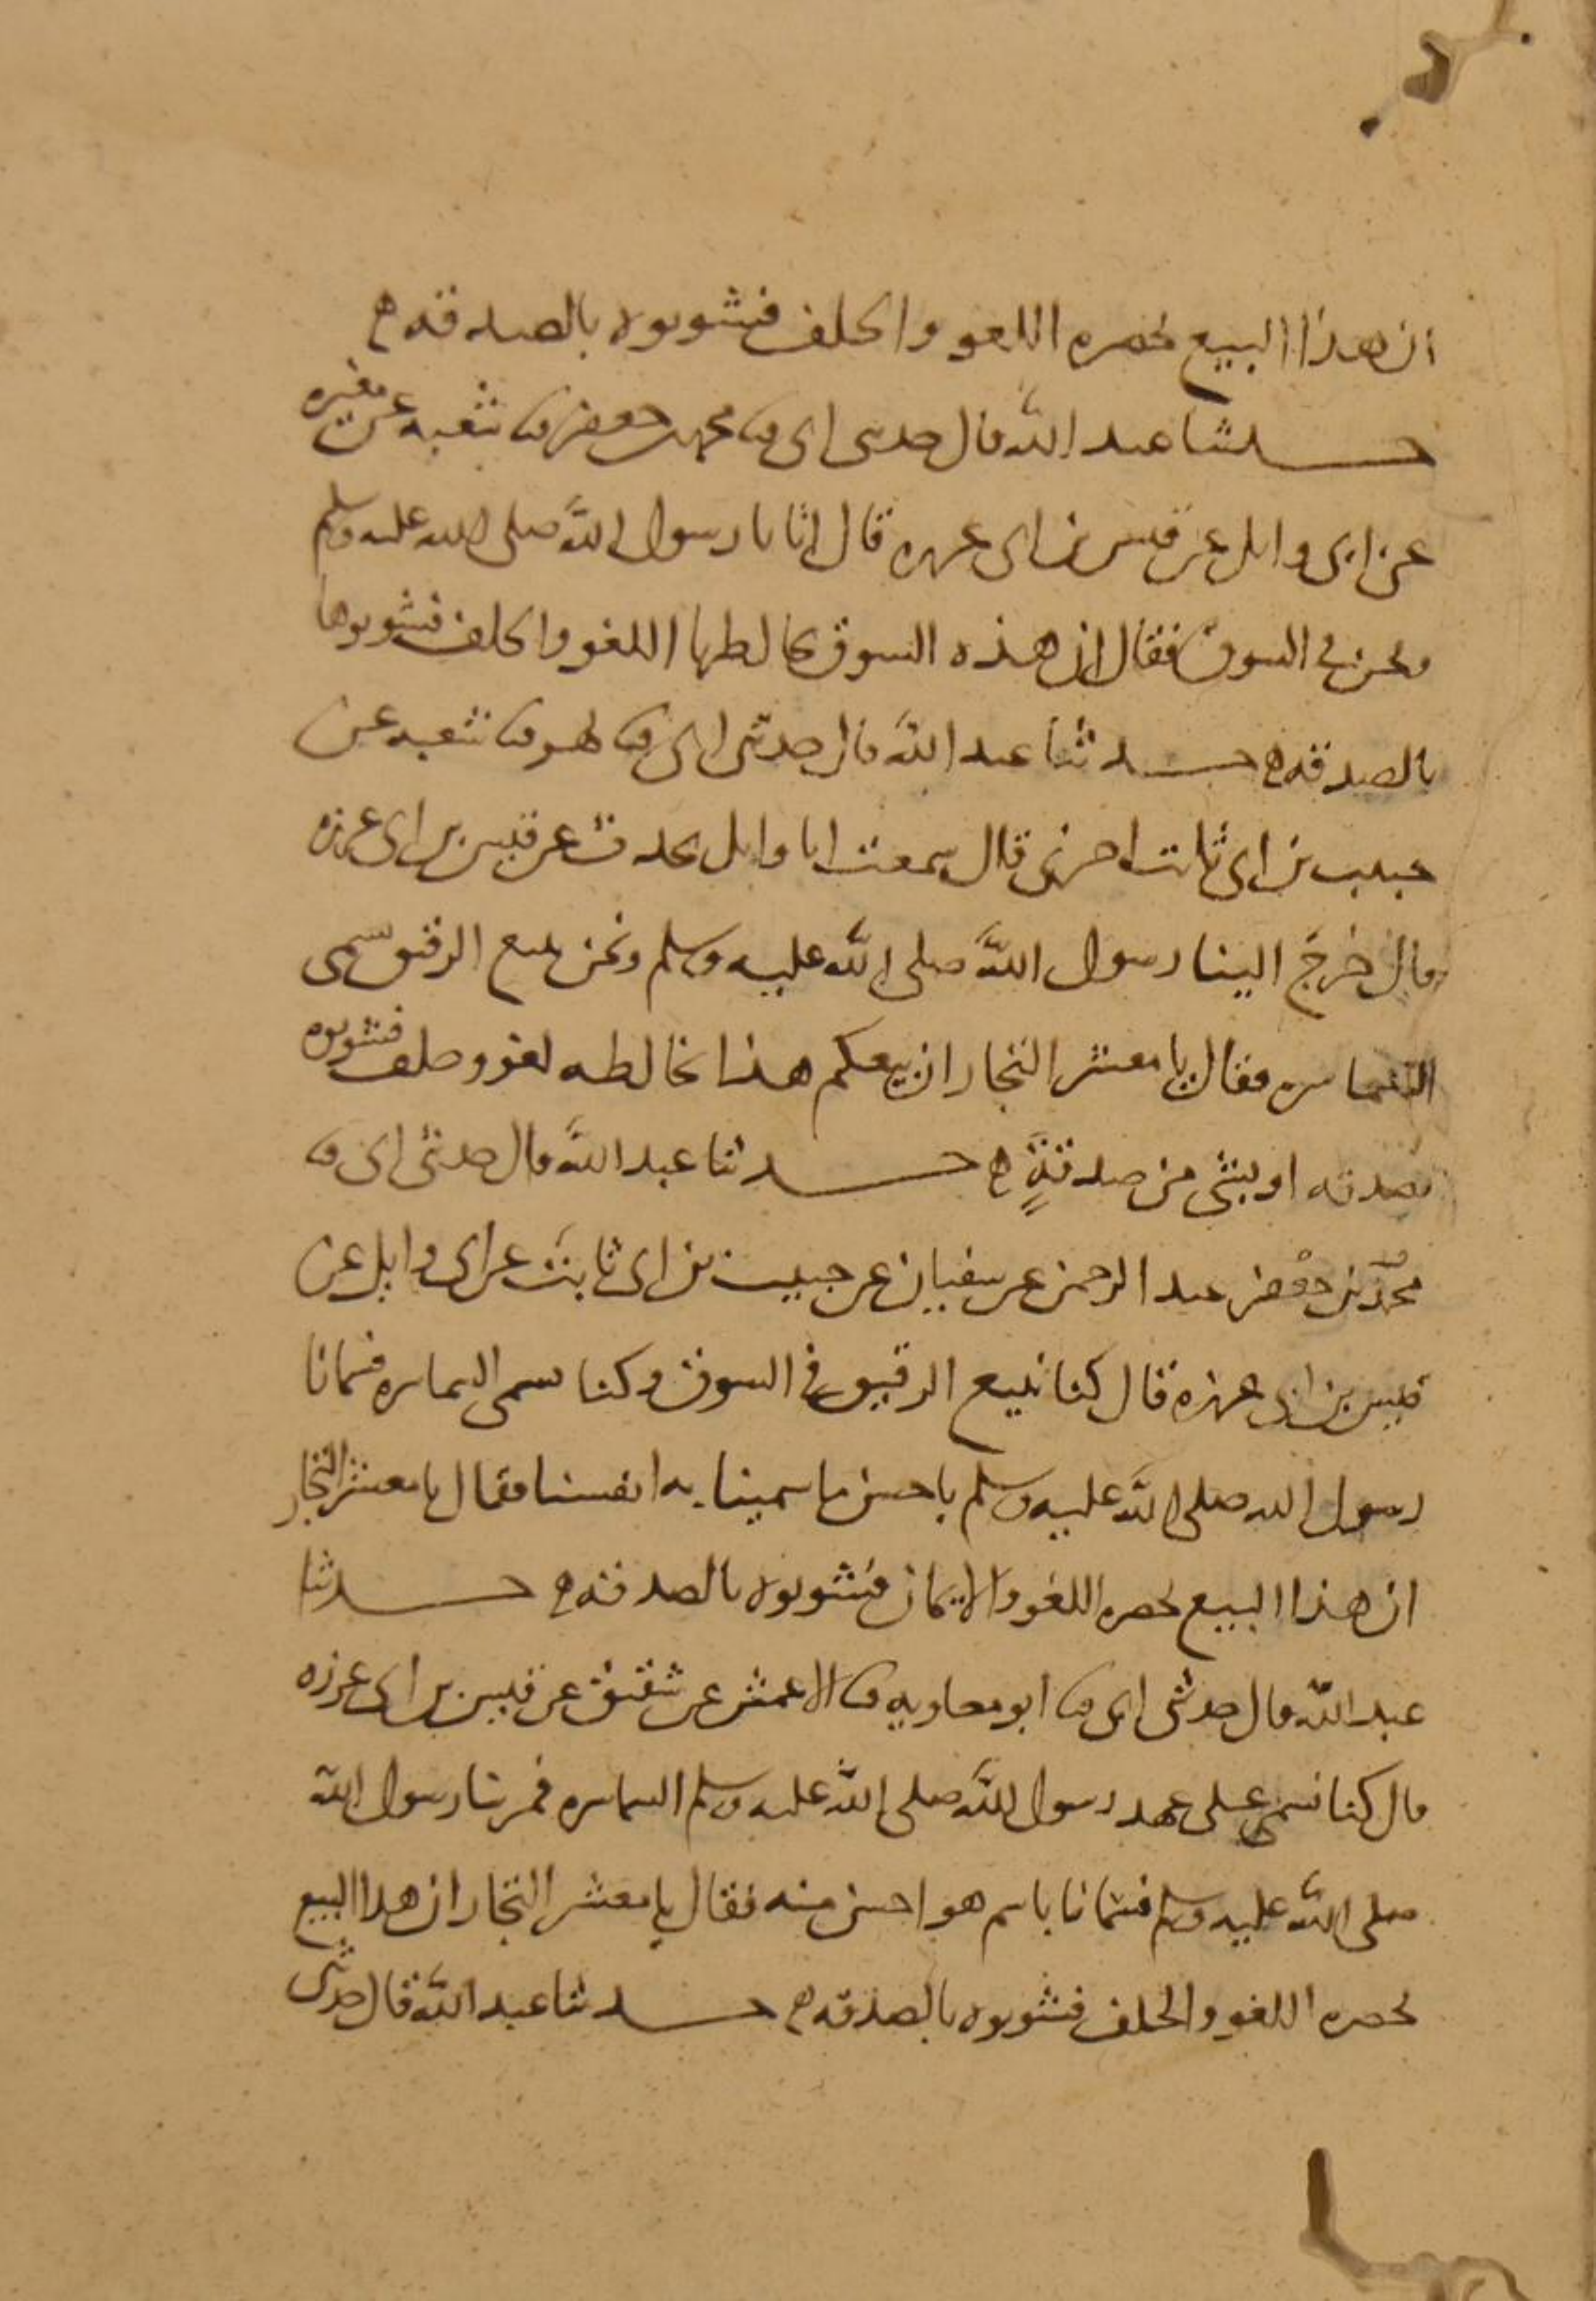 ان هذا البيع يحضره اللغو والحلف فشوبوه بالصدقة ه
حدثنا عبد الله قال حدثني ابي ثنا محمد بن جعفر ثنا شعبه عن مغيره
عن ابي وايل عن قيس بن ابي غرزه قال اتانا رسول الله صلى الله عليه وسلم
ونحن في السوق فقال ان هذه السوق يخالطها اللغو والحلف فشوبوها
بالصدقه ه حدثنا عبد الله قال حدثني ابي ثنا بهز ثنا شعبه عن
حبيب بن ابي ثابت اخبرني قال سمعت ابا وايل يحدث عن قيس بن ابي غرزه
قال خرج الينا رسول الله صلى الله عليه وسلم ونحن نبيع الرقيق نسمى
السماسره فقال يا معشر التجار ان بيعكم هذا يخالطه لغو وحلف فشوبوه
بصدقه او بشي من صدقةٍ ه حدثنا عبد الله قال حدثني ابي ثنا
محمد بن جعفر عبد الرحمن عن سفيان عن حبيب بن ابي ثابت عن ابي وايل عن
قيس بن ابي غرزه قال كنا نبيع الرقيق في السوق وكنا نسمى السماسره فسمانا
رسول الله صلى الله عليه وسلم باحسن ما سمينا به انفسنا فقال يا معشر التجار
ان هذا البيع يحضره اللغو والايمان فشوبوه بالصدقه ه حدثنا
عبد الله قال حدثني ابي ثنا ابو معاويه ثنا الاعمش عن شقيق عن قيس بن ابي غرزه
قال كنا نسمى على عهد رسول الله صلى الله عليه وسلم السماسره فمر بنا رسول الله
صلى الله عليه وسلم فسمانا باسم هو احسن منه فقال يا معشر التجار ان هذا البيع
يحضره اللغو والحلف فشوبوه بالصدقه ه حدثنا عبد الله قال حدثني